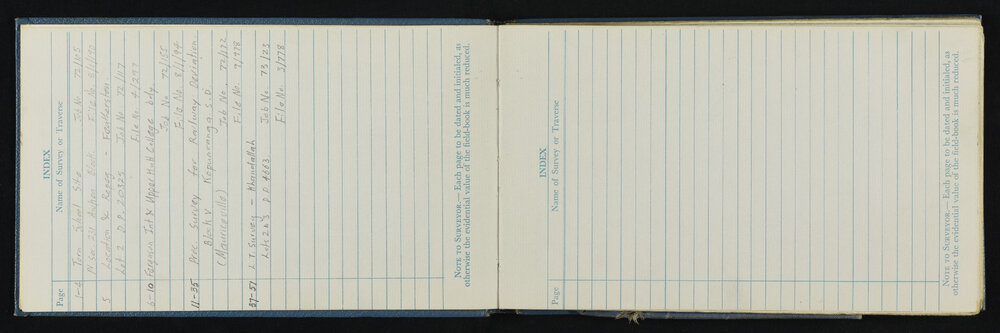 INDEX
Page Name of Survey or Traverse
1-4 School Site Job No. 72/105
Pt Sec. 24 Block. File No. 8/1/90
5 Location & Repeg - Featherston
Lot 2 D.P. 20325 Job No. 72/117
File No. 4/297
6-10 Fergusson Int & Upper Hutt College bdy.
Job No. 72/155
File No. 8/1/94
11-35 Prec. Survey for Railway Deviation.
Block V Kopuaranga S.D.
(Mauriceville) Job No. 72/172
File No. 9/978
37-51 L.T. Survey - Khandallah
Lots 2 & 3 D.P. 4663. Job No. 73/23
File No. 3/778
NOTE TO SURVEYOR.— Each page to be dated and initialed, as
otherwise the evidential value of the field-book is much reduced.
INDEX
Page Name of Survey or Traverse
NOTE TO SURVEYOR.— Each page to be dated and initialed, as
otherwise the evidential value of the field-book is much reduced.